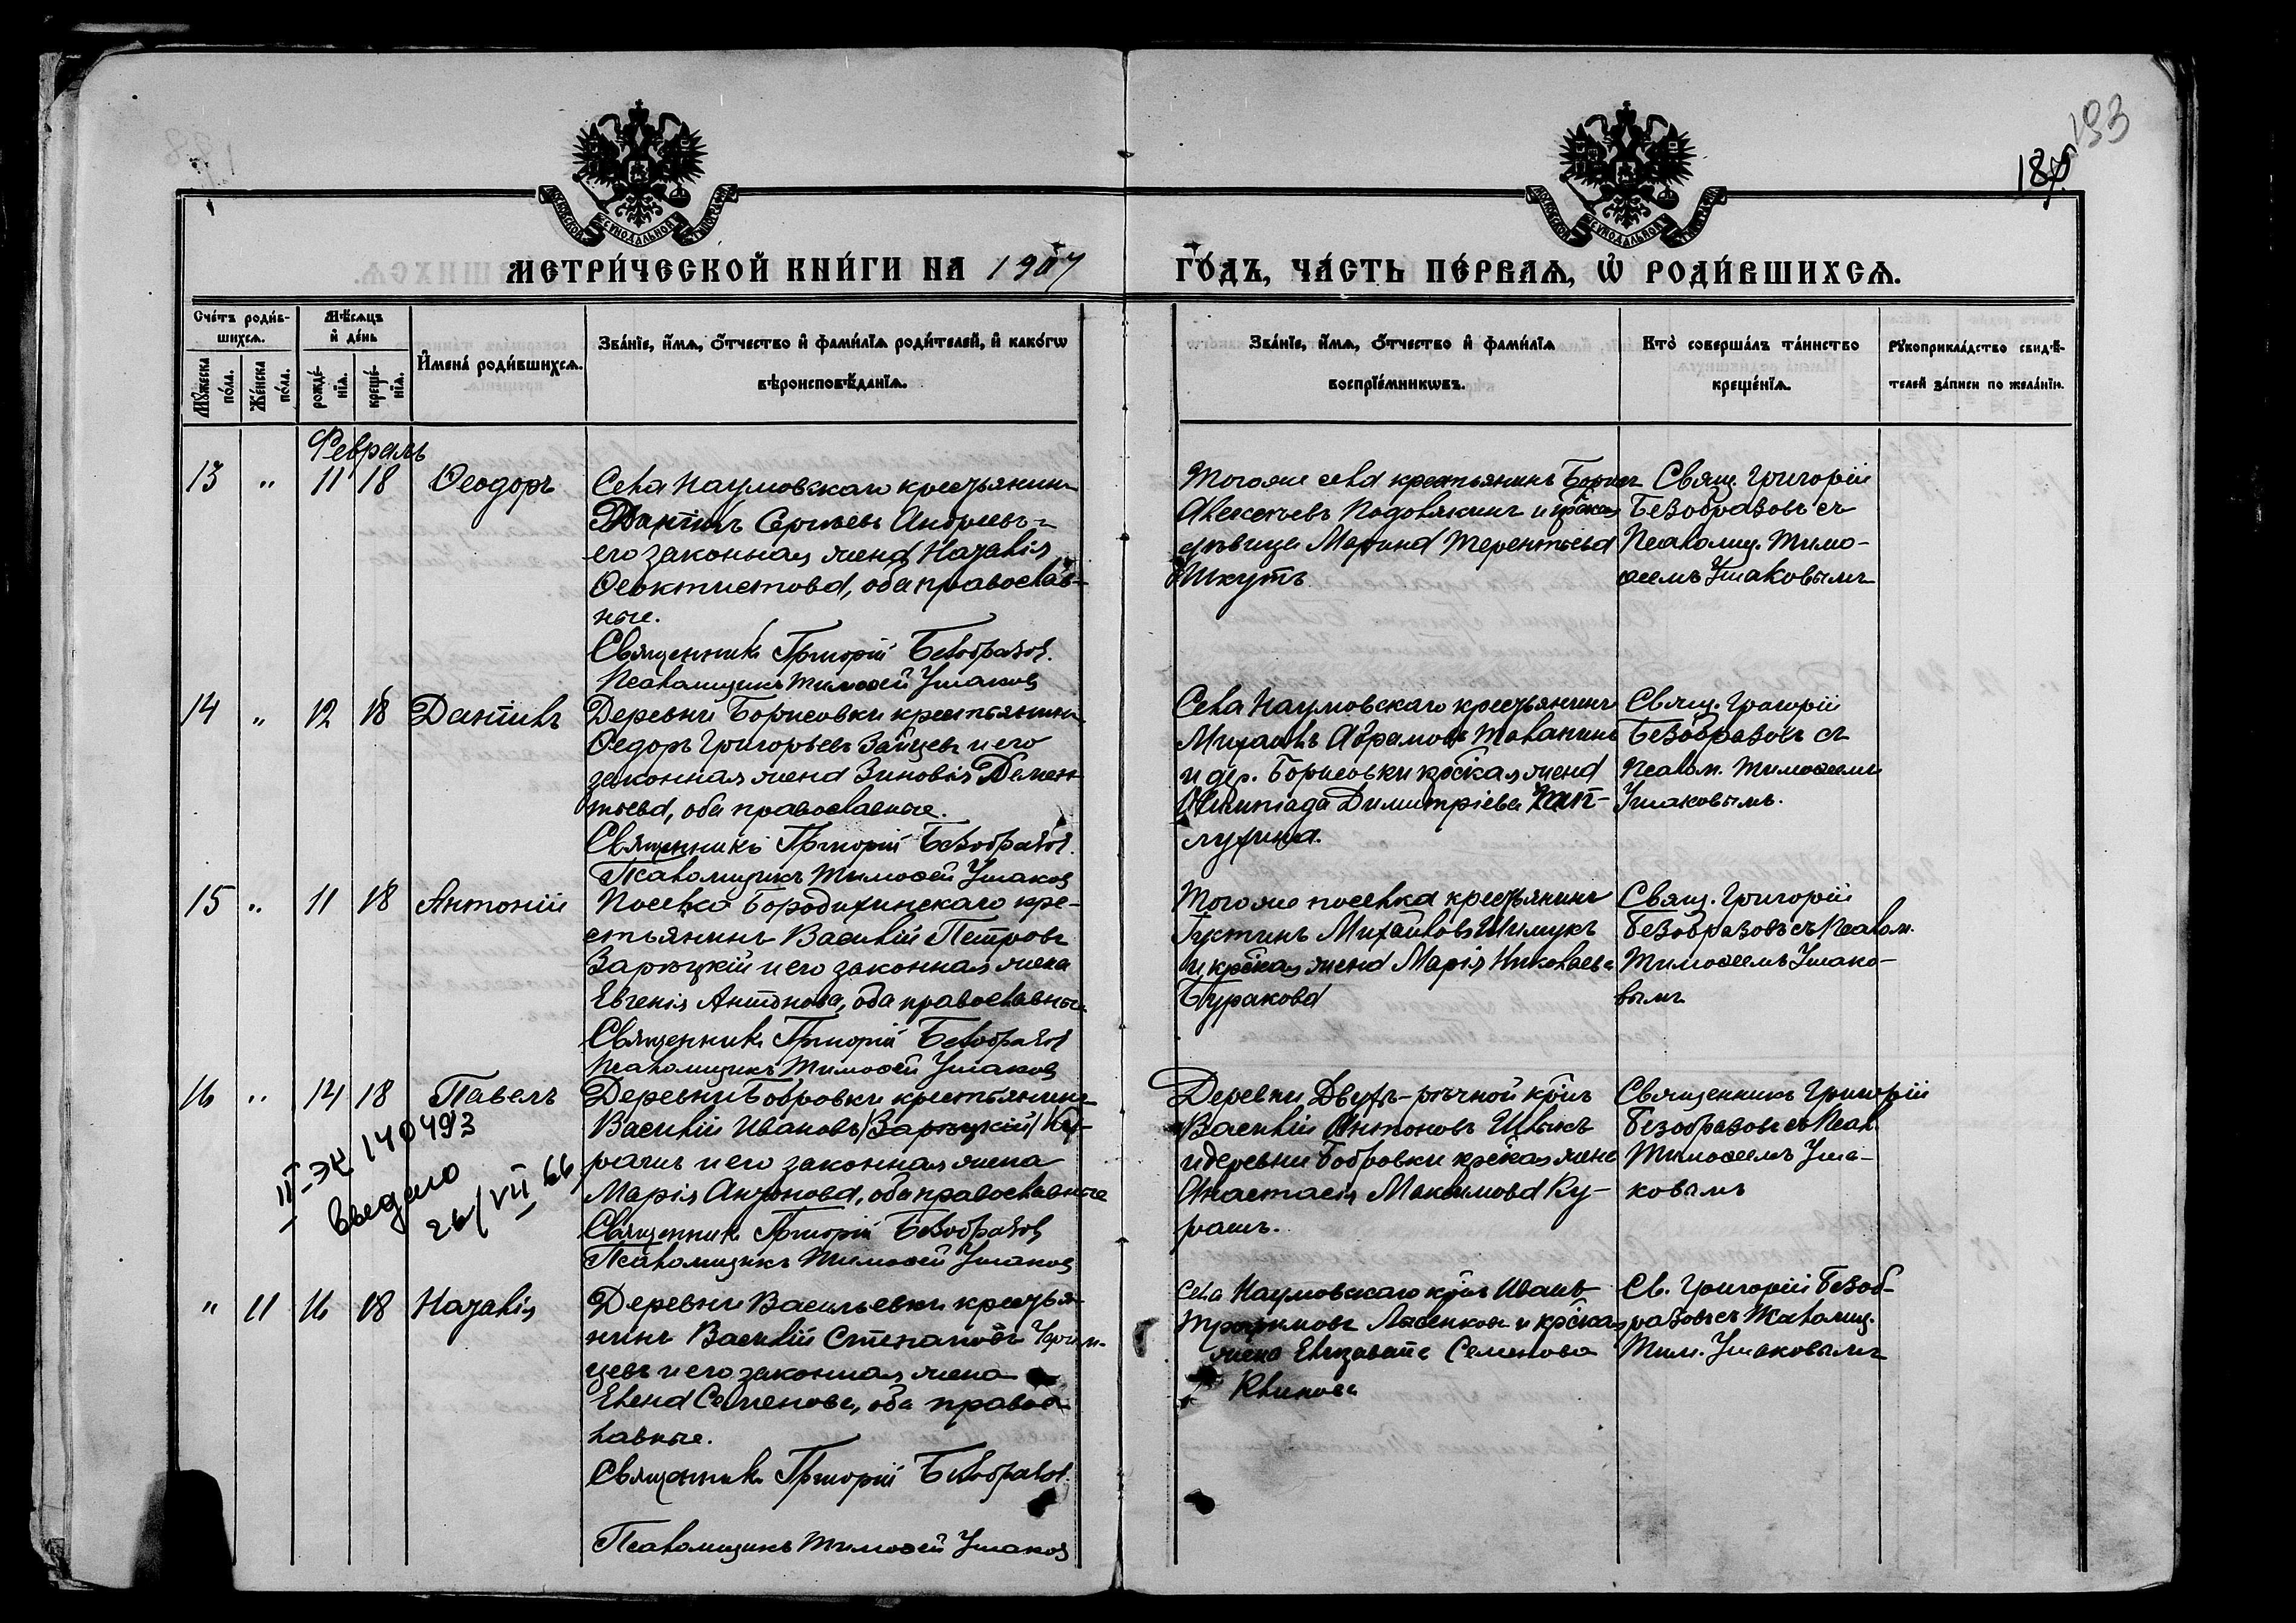 193
187
МЕТРИ́ЧЕСКОЙ КНИ́ГИ НА 1907 ГО́ДЪ, ЧА́СТЬ ПЕ́РВАѦ, Ѡ҆ РОДИ́ВШИХСѦ.
Сче́тъ роди́в-
шихсѧ.
Мѣ́сѧцъ
и҆ де́нь
Мꙋ́жеска
по́ла.
Же́нска
по́ла.
рожде́-
нїѧ.
креще́-
нїѧ.
И҆мена̀ роди́вшихсѧ.
Зва́нїе, и҆́мѧ, ѻ҆́тчество и҆ фами́лїѧ роди́телей, и҆ како́гѡ
вѣроисповѣ́данїѧ.
Зва́нїе, и҆́мѧ, ѻ҆́тчество и҆ фами́лїѧ
воспрїе́мникѡвъ.
Кто̀ соверша́лъ та́инство
креще́нїѧ.
Рꙋкоприкла́дство свидѣ́-
телей за́писи по жела́нїю.
Февраль
13 " 11 18 Ѳеодоръ
Села Наумовскаго крестьянинъ
Сергѣевъ Андреевъ-
его законная жена Наталія
Ѳеоктистова, оба православ-
ные.
Священникъ Григорій Безобразов.
Псаломщикъ Тимоѳей Ушаков
Тогоже села крестьянинъ Борисъ
Алексѣевъ Подолякинъ и кр̃ская
дѣвица Марина Терентьева
Шкутъ
Свящ. Григорій
Безобразовъ съ
Псаломщ. Тимо-
ѳеемъ Ушаковымъ
14 " 12 18 Даніилъ
Деревни Борисовки крестьянинъ
Ѳедоръ Григорьевъ Зайцевъ и его
законная жена Зиновія Демен-
тьева, оба православные.
Священникъ Григорій Безобразов.
Псаломщикъ Тимоѳей Ушаков
Села Наумовскаго крестьянинъ
Михаилъ Абрамовъ
и дер. Борисовки кр̃ская жена
Олимпіада Димитріева
лухина.
Свящ. Григорій
Безобразовъ съ
Псалом. Тимоѳеемъ
Ушаковымъ.
15 " 11 18 Антоній
Поселка Бородихинскаго кре-
стьянинъ Василій Петровъ
Зарѣцкій и его законная жена
Евгенія Антонова, оба православные.
Священникъ Григорій Безобразов
Псаломщикъ Тимоѳей Ушаков
Тогоже поселка крестьянинъ
Густинъ Михайловъ Шимукъ
и кр̃ская жена Марія Николаева
Буракова
Свящ. Григорій
Безобразовъ съ Псалом.
Тимоѳеемъ Ушако-
вымъ
16 " 14 18 Павелъ
Деревни Бобровки крестьянинъ
Василій Ивановъ /Зарѣцкій/ Ку-
рашъ и его законная жена
Марія Антонова, оба православные
Священникъ Григорій Безобразов
Псаломщикъ Тимоѳей Ушаков
II-ЭК 140493
выдано
26/VII 66
Деревни Двухъ-рѣчной кр̃нъ
Василій Антоновъ Швыкъ
и деревни Бобровки кр̃ская жена
Анастасія Максимова Ку-
рашъ.
Священникъ Григорій
Безобразовъ съ Псал.
Тимоѳеемъ Уша-
ковымъ
" 11 16 18 Наталія
Деревни Васильевки крестья-
нинъ Василій Степановъ
цевъ и его законная жена
Елена Семенова, оба правос-
лавные.
Священникъ Григорій Безобразов.
Псаломщикъ Тимоѳей Ушаков
Села Наумовскаго кр̃нъ Иванъ
Трофимовъ Лысенковъ и кр̃ская
жена Елизавета Семенова
Климова
Св. Григорій Безоб-
разовъ съ Псаломщ.
Тим. Ушаковымъ